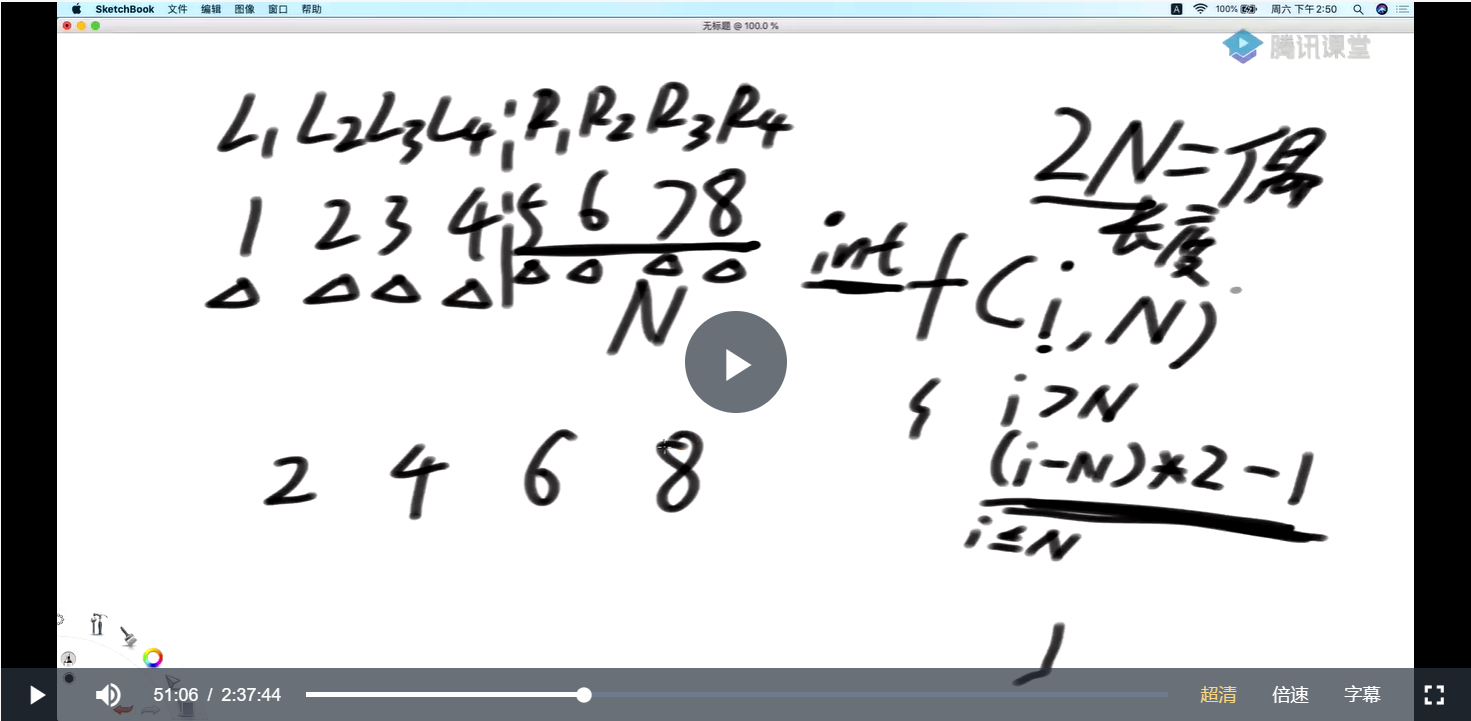 SketchBook 文件 编辑 图像 窗口 帮助 A 100% 周六 下午2:50
无标题 @ 100.0 %
腾讯课堂
L1 L2 L3 L4 R1 R2 R3 R4
1 2 3 4 5 6 7 8
N
2N=偶
长度
int f(i,N)
{ i>N
(i-N)*2-1
i≤N
}
2 4 6 8
51:06 / 2:37:44 超清 倍速 字幕